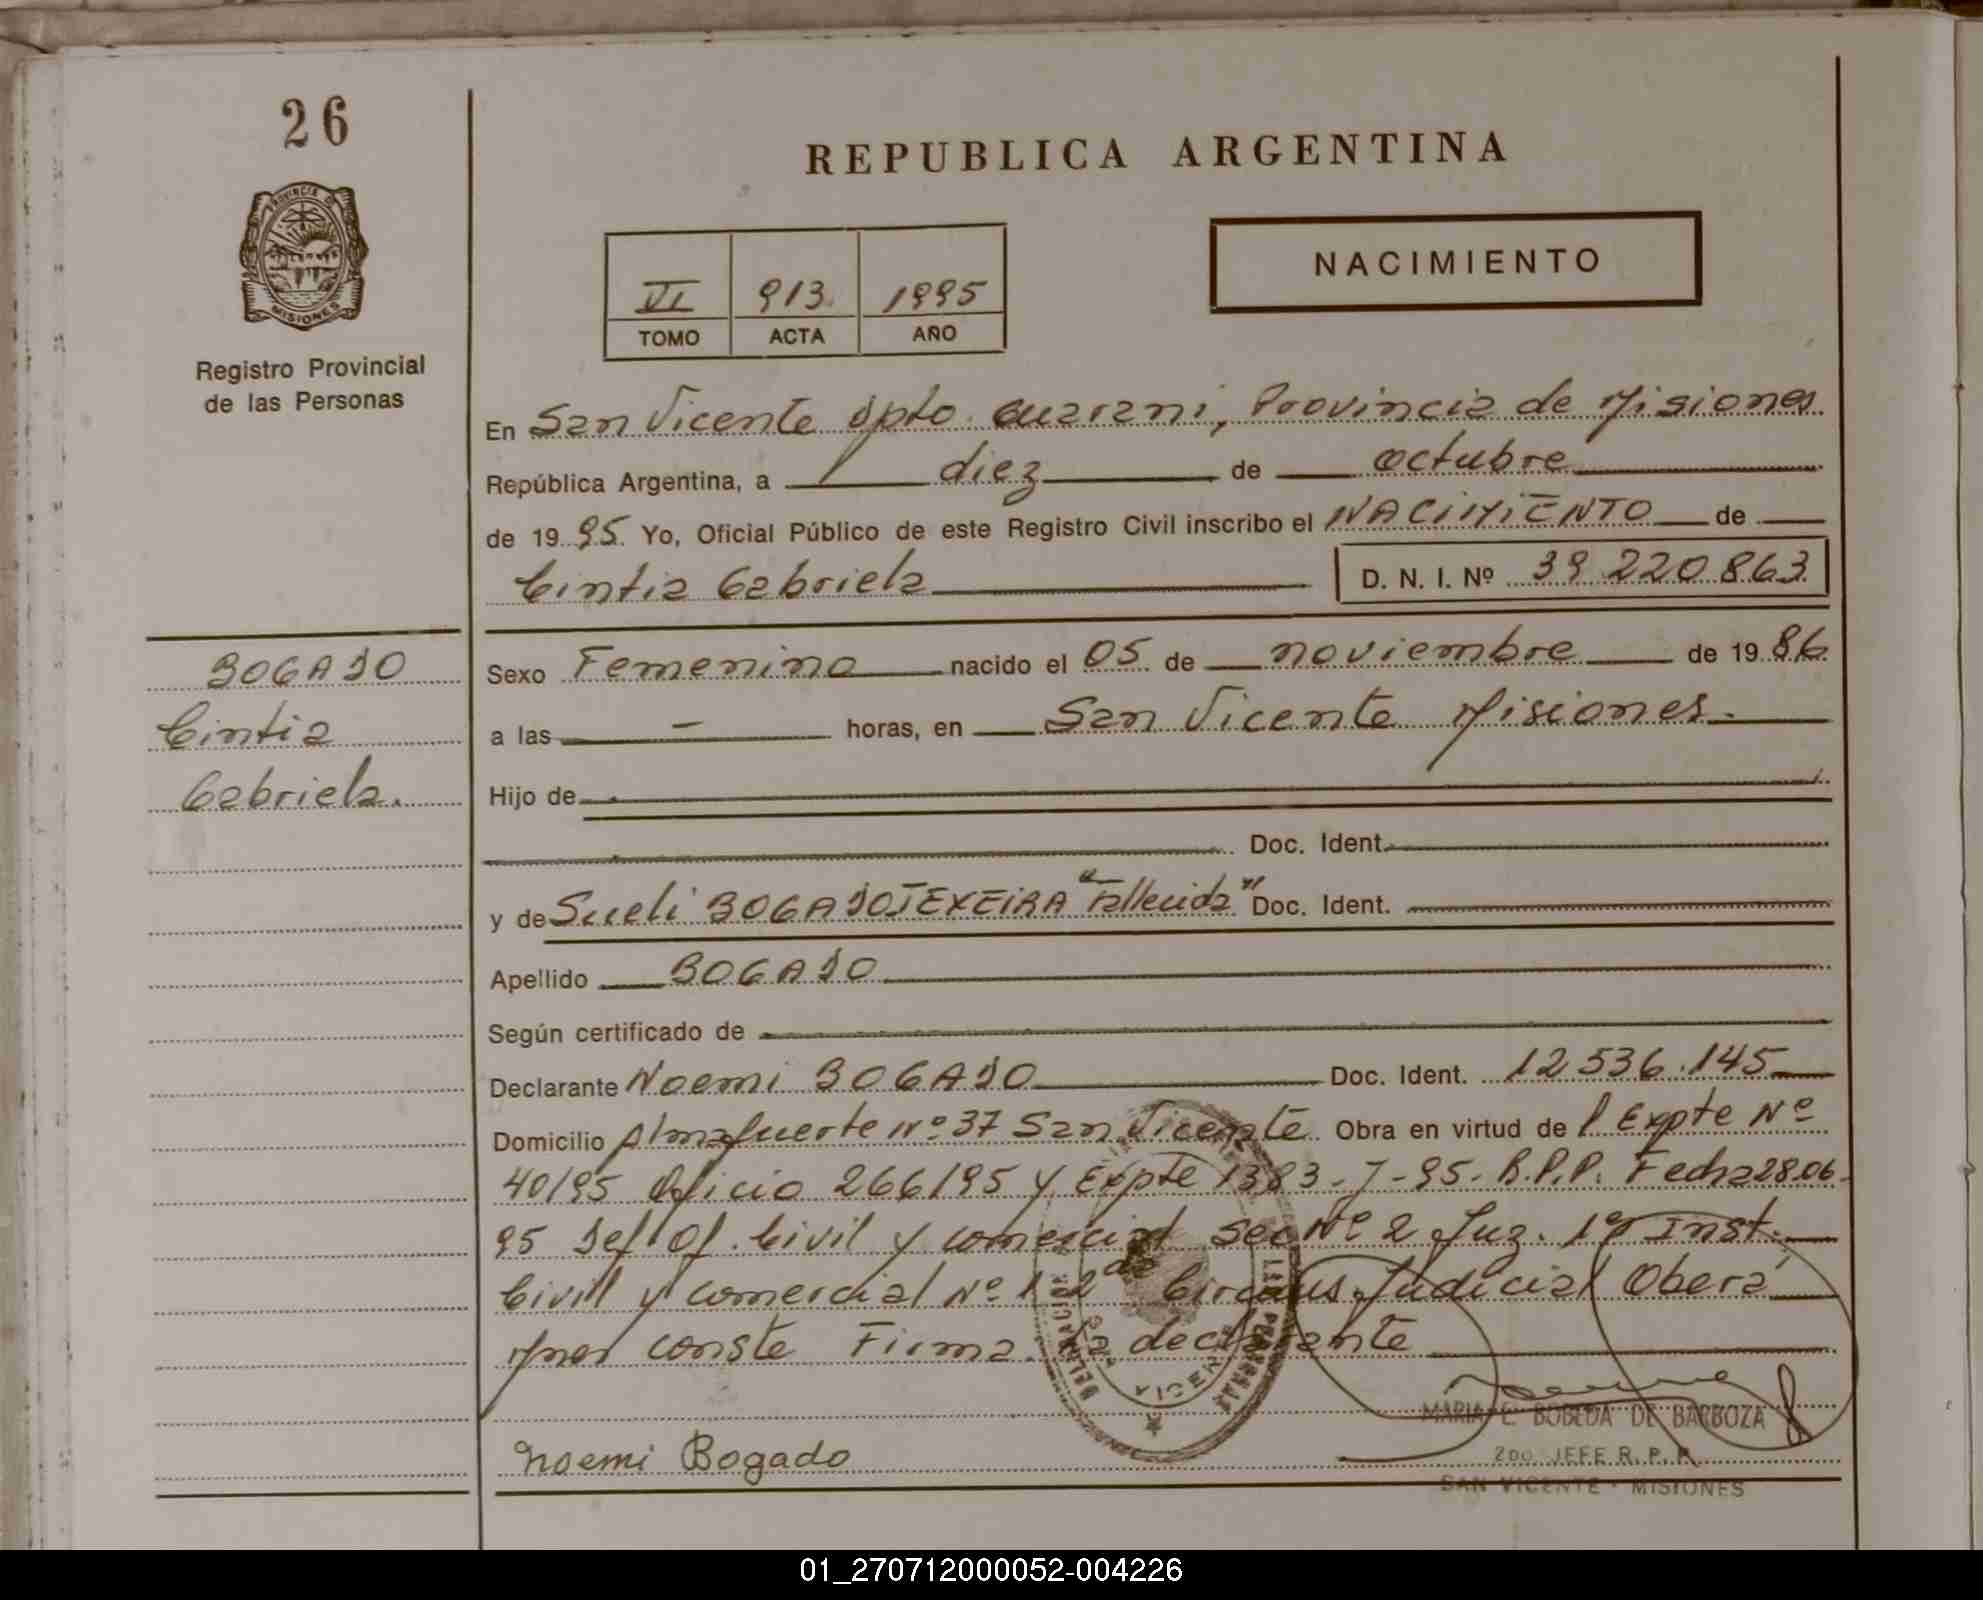 26
REPUBLICA ARGENTINA
PROVINCIA DE
MISIONES
Registro Provincial
de las Personas
NACIMIENTO
VI 913 1995
TOMO ACTA AÑO
En San Vicente Dpto. Guarani, Provincia de Misiones
República Argentina, a diez de octubre
de 1995. Yo, Oficial Público de este Registro Civil inscribo el NACIMIENTO de
Cintia Gabriela D. N. I. Nº 39 220 863
BOGADO
Cintia
Gabriela.
Sexo Femenino nacido el 05 de noviembre de 1986
a las - horas, en San Vicente Misiones.
Hijo de
Doc. Ident.
y de Sueli BOGADO TEXEIRA "Fallecida" Doc. Ident.
Apellido BOGADO
Según certificado de
Declarante Noemi BOGADO Doc. Ident. 12 536.145
Domicilio Almafuerte Nº 37 San Vicente. Obra en virtud de l Expte Nº
40/95 Oficio 266/95 y Expte 1383-J-95-R.P.P. Fecha 28.06.
95 Def Of. Civil y comercial Sec Nº 2 Juz. 1º Inst.
Civil y comercial Nº 1 2da Circuns. Judicial Oberá
conste Firma la declarante
Noemi Bogado
MARIA E. BOBEDA DE BARBOZA
2do. JEFE R. P. P.
SAN VICENTE - MISIONES
01_270712000052-004226